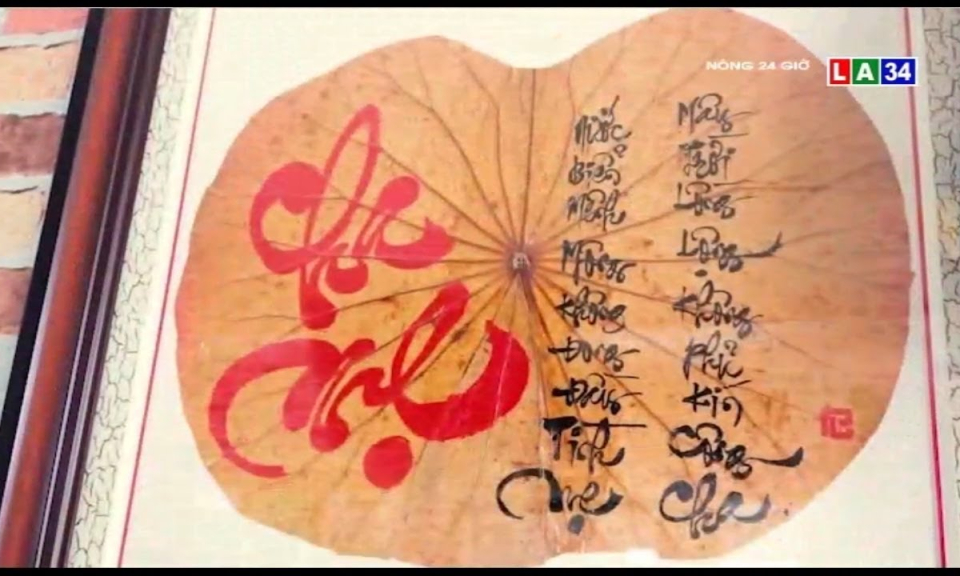 NÓNG 24 GIỜ
LA34
Cha
Mẹ
Nước Biển Mênh Mông Không Đong Đầy Tình Mẹ
Mây Trời Lồng Lộng Không Phủ Kín Công Cha